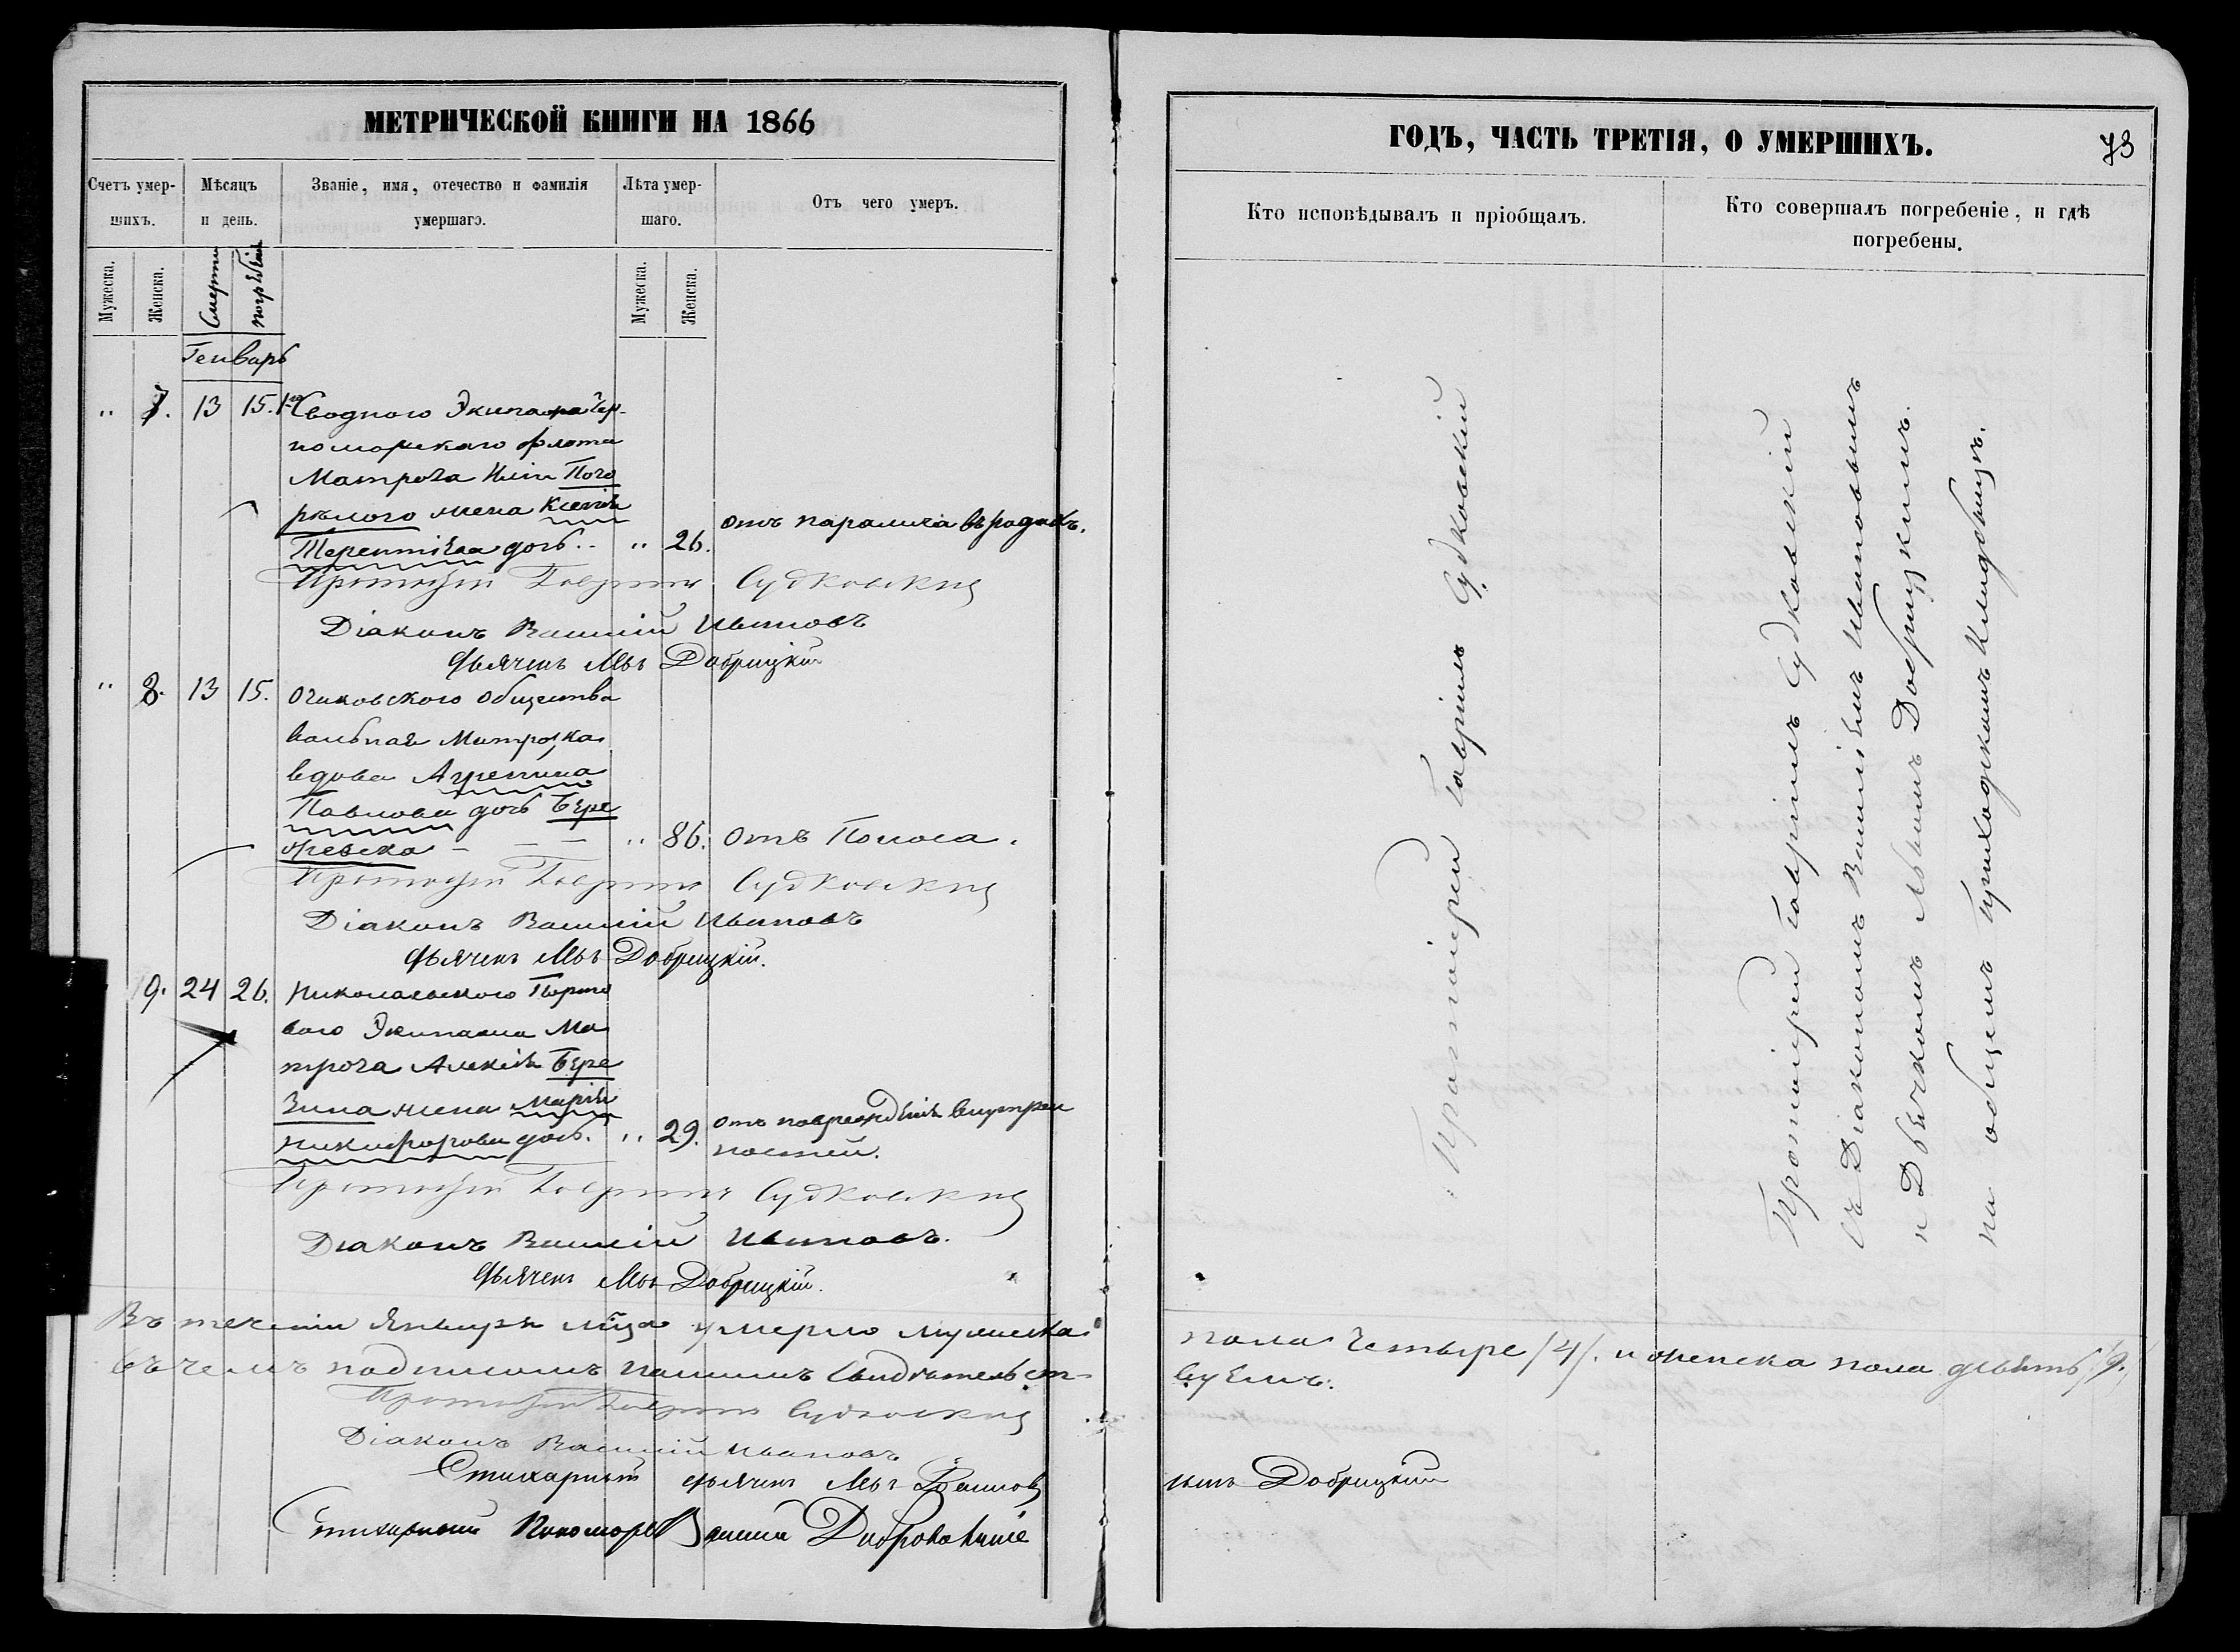 МЕТРИЧЕСКОЙ КНИГИ НА 1866
Счетъ умер-
шихъ.
Мѣсяцъ
и день.
Званіе, имя, отечество и фамилія
умершаго.
Лѣта умер-
шаго.
Отъ чего умеръ.
Мужеска.
Женска.
Смерти
погребенія
Мужеска.
Женска.
Генварь
" 7. 13 15. 1го Сводного Экипажа Чер-
номорскаго флота
Матроса Пого
рѣлого жена Ксенія
Терентіева дочь.. " 26. отъ паралича въ родахъ.
Протоіерей Гавріилъ Судковскій
Діаконъ Василій Ивановъ
Дьячекъ Левъ Добрицкій
" 8. 13 15. Очаковского Общества
вольная Матроска
вдова Агрепина
Павлова дочь Бере
жевска - - - " 86. Отъ Поноса.
Протоіерей Гавріилъ Судковскій
Діаконъ Василій Ивановъ
Дьячекъ Левъ Добрицкій.
9. 24 26. Николаевского Порто
вого Экипажа Ма
троса Алексѣя Бере
зина жена Марія
Никифорова дочь. " 29. отъ поврежденія внутрен
ностей.
Протоіерей Гавріилъ Судковскій
Діаконъ Василій Ивановъ.
Дьячекъ Левъ Добрицкій.
Въ теченіи Января мѣсца умерло мужеска
въ чемъ подписомъ нашимъ Свидѣтельст-
Протоіерей Гавріилъ Судковскій
Діаконъ Василій Ивановъ
Стихарный дьячекъ Левъ
Стихарный Пономарь Василій
ГОДЪ, ЧАСТЬ ТРЕТІЯ, О УМЕРШИХЪ.
73
Кто исповѣдывалъ и пріобщалъ.
Кто совершалъ погребеніе, и гдѣ
погребены.
Протоіерей Гавріилъ Судковскій
Протоіерей Гавріилъ Судковскій
съ Діакономъ Василіемъ Ивановымъ
и Дьячкомъ Львомъ Добрицкимъ.
на общемъ приходскомъ Кладбищѣ.
пола Четыре /4/. и женска пола девять /9./
вуемъ.
Добрицкій